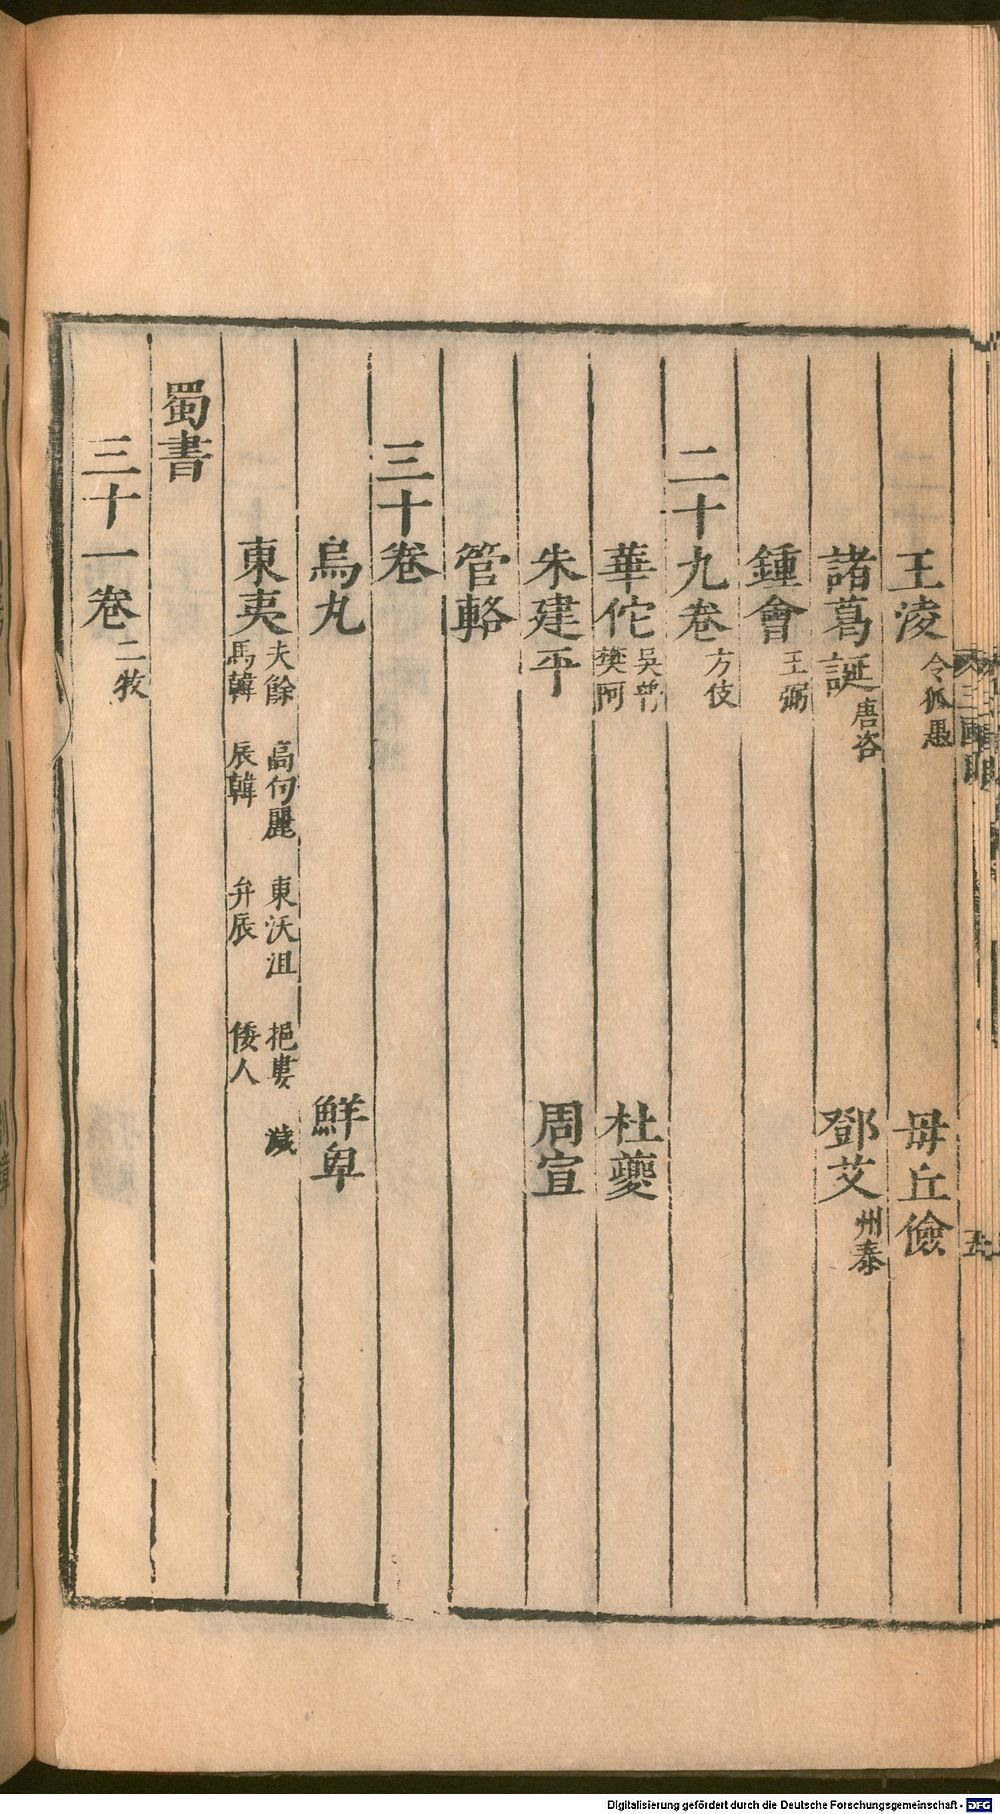 王淩 令狐愚 毋丘儉
諸葛誕 唐咨 鄧艾 州泰
鍾會 王弼
二十九卷 方伎
華佗 吳普 樊阿 杜夔
朱建平 周宣
管輅
三十卷
烏丸 鮮卑
東夷 夫餘 高句麗 東沃沮 挹婁 濊
馬韓 辰韓 弁辰 倭人
蜀書
三十一卷 二牧
Digitalisierung gefördert durch die Deutsche Forschungsgemeinschaft - DFG